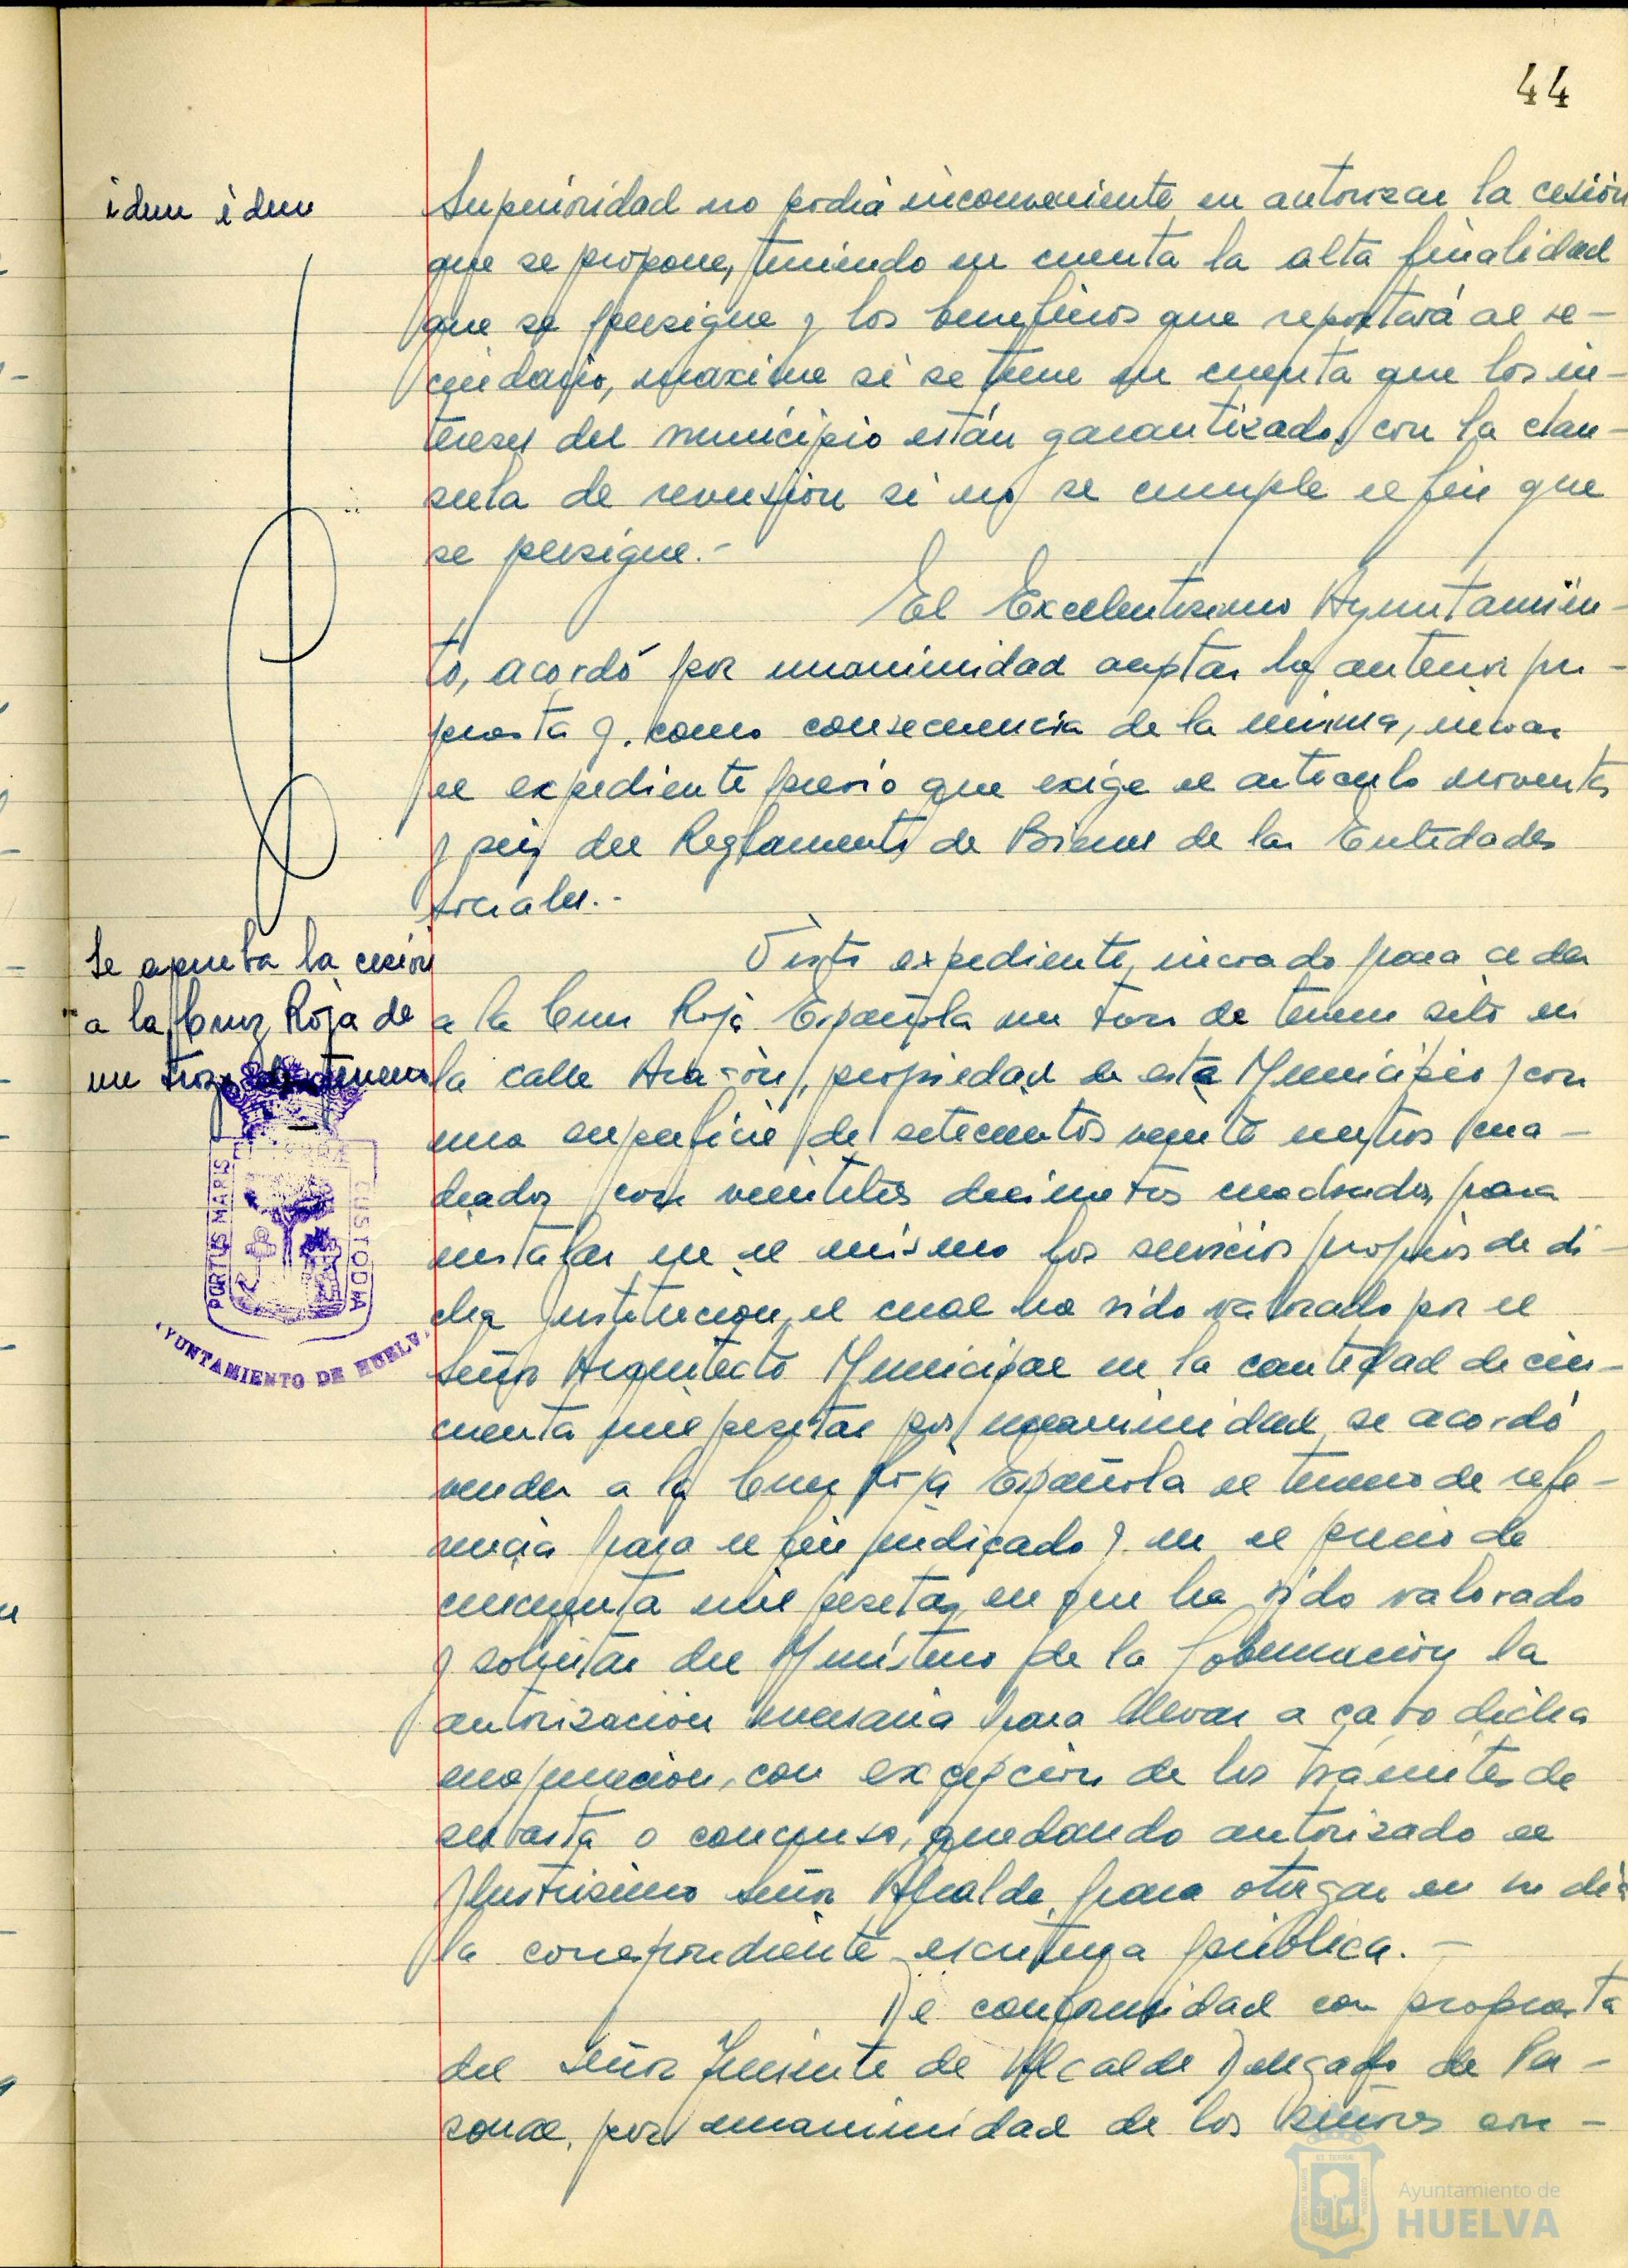 44
idem idem
Superioridad no podrá inconveniente en autorizar la cesión
que se propone, teniendo en cuenta la alta finalidad
que se persigue y los beneficios que reportará al ve-
cindario, maxime si se tiene en cuenta que los in-
tereses del municipio están garantizados con la clau-
sula de reversión si no se cumple el fin que
se persigue.-
El Excelentísimo Ayuntamien-
to, acordó por unanimidad aceptar la anterior pro-
puesta y, como consecuencia de la misma, iniciar
el expediente previo que exige el artículo noventa
y seis del Reglamento de Bienes de las Entidades
Locales.-
Se aprueba la cesión
a la Cruz Roja de
un trozo de terreno
Visto expediente, iniciado para ceder
a la Cruz Roja Española un trozo de terreno sito en
la calle Aragón, propiedad de este Municipio, con
una superficie de setecientos veinte metros cua-
drados con veintitrés decimetros cuadrados, para
instalar en el mismo los servicios propios de di-
cha Institución, el cual ha sido valorado por el
Señor Arquitecto Municipal en la cantidad de cin-
cuenta mil pesetas por unanimidad, se acordó
vender a la Cruz Roja Española el terreno de refe-
rencia para el fin indicado y en el precio de
cincuenta mil pesetas, en que ha sido valorado
y solicitar del Ministerio de la Gobernación la
autorización necesaria para llevar a cabo dicha
enajenación, con excepción de los trámites de
subasta o concurso, quedando autorizado el
Ilustrísimo Señor Alcalde, para otorgar en su día
la correspondiente escritura pública.-
De conformidad con propuesta
del Señor Teniente de Alcalde Delegado de Per-
sonal, por unanimidad de los señores con-
PORTUS MARIS
ET TERRAE
CUSTODIA
AYUNTAMIENTO DE HUELVA
Ayuntamiento de
HUELVA